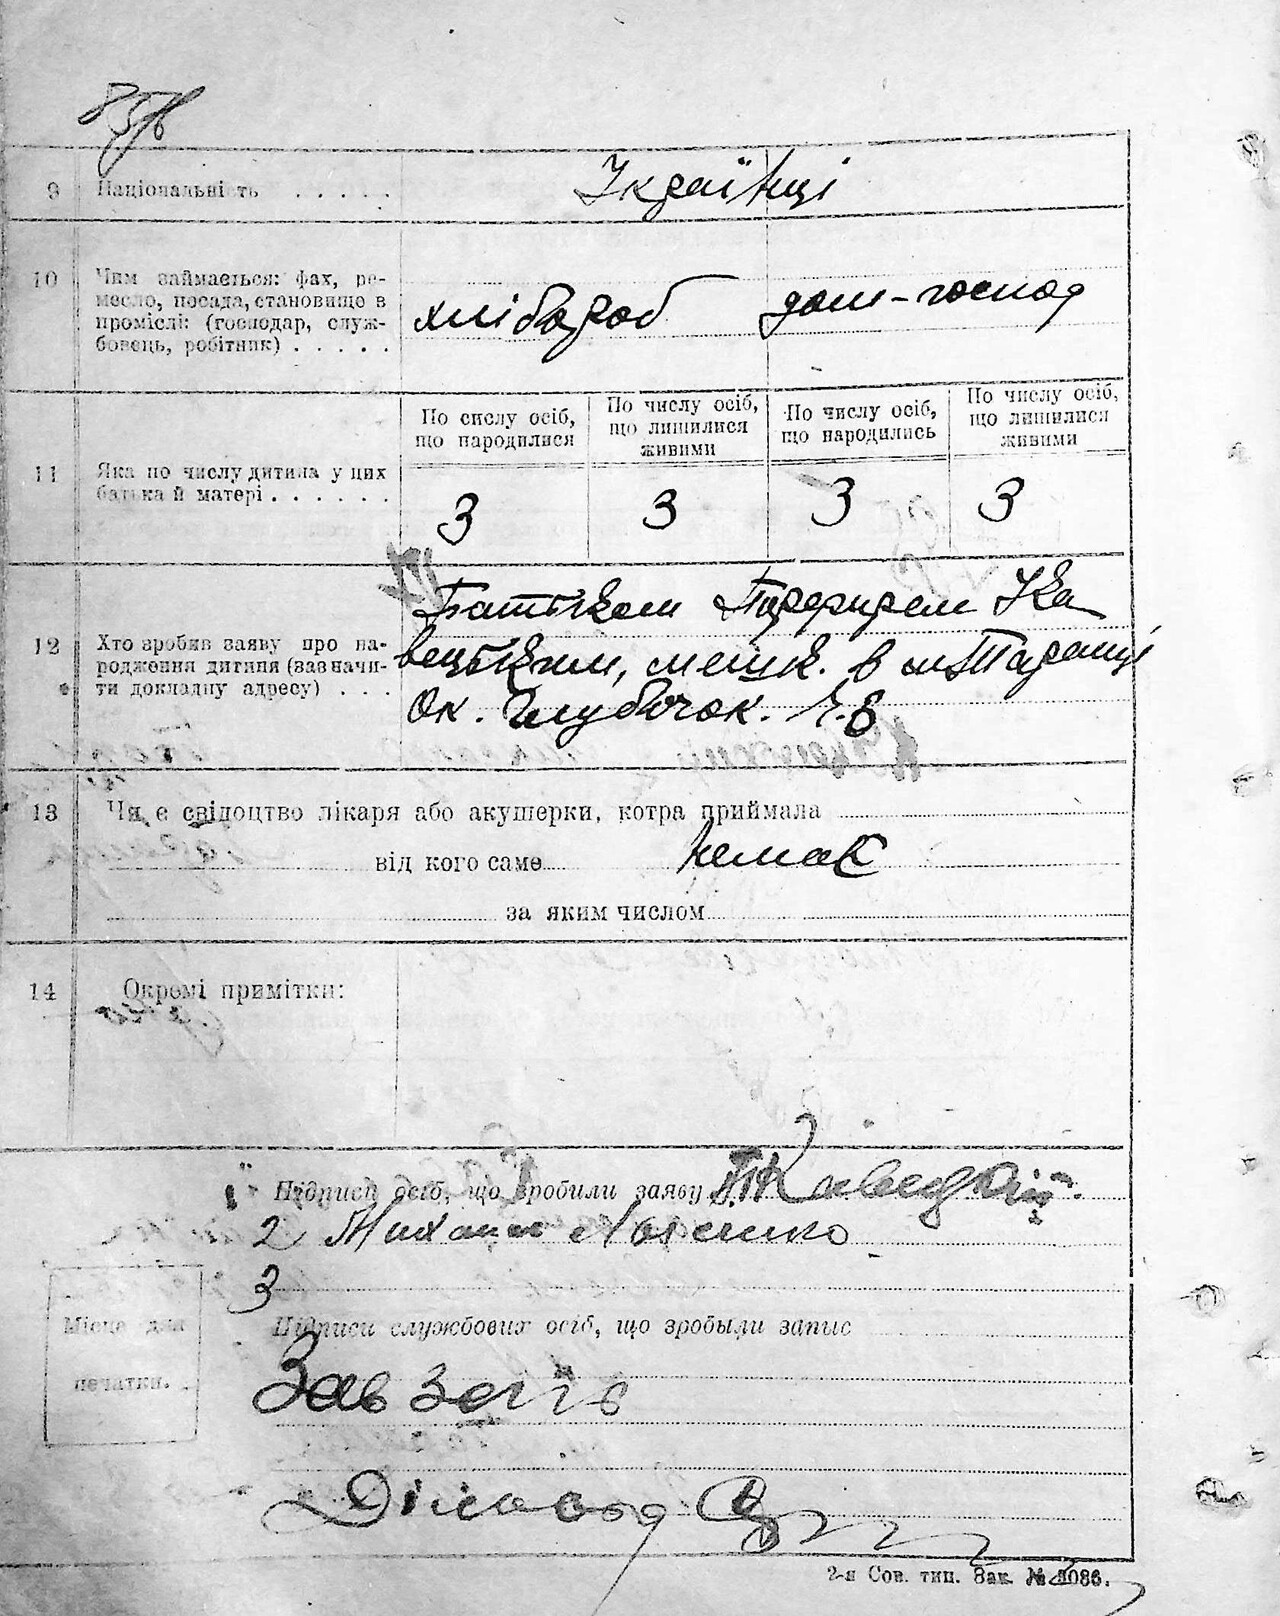 9 Національність . . . . . Украïнці
10 Чим займається: фах, ре-
месло, посада, становище в
промислі: (господар, служ-
бовець, робітник) . . . . .
хлібороб дом-господ
По сислу осіб,
що народилися
По числу осіб,
що лишилися
живими
По числу осіб,
що народились
По числу осіб,
що лишилися
живими
11 Яка по числу дитина у цих
батька й матері . . . . . .
3 3 3 3
12 Хто зробив заяву про на-
родження дитини (зазначи-
ти докладну адресу) . . .
Батьком Парфирем Ка
вецьким, мешк. в м Таращі
Ок. Глубочок. Ч.8
13 Чи є свідоцтво лікаря або акушерки, котра приймала
від кого саме немає
за яким числом
14 Окремі примітки:
1 Підписи осіб, що зробили заяву П Кавецкий
2 Михаил
3
Місце для
печатки.
Підписи службових осіб, що зробыли запис
Зав загів
Діловод
2-я Сов. тип. Зак. № 3086.